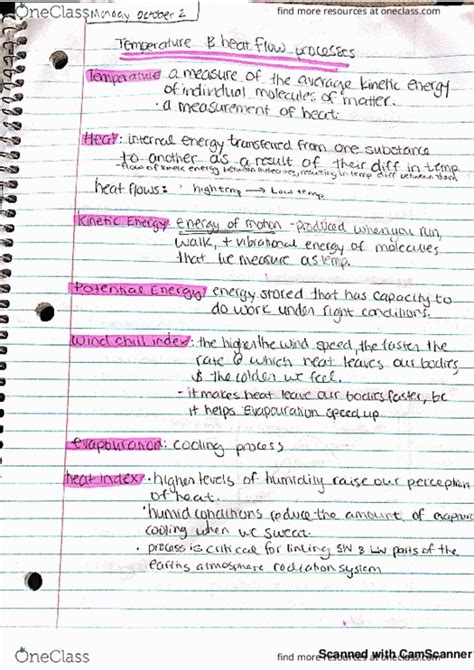 OneClass
find more resources at oneclass.com
Monday October 2
Temperature & heat flow processes
Temperature a measure of the average kinetic energy
of individual molecules of matter.
· a measurement of heat.
Heat: internal energy transferred from one substance
to another as a result of their diff in temp
-flow of kinetic energy between molecules, resulting in temp diff between them
heat flows: high temp → Low temp
Kinetic Energy: energy of motion - produced when you run,
walk, + vibrational energy of molecules
that we measure as temp.
Potential Energy: energy stored that has capacity to
do work under right conditions.
Wind chill index: the higher the wind speed, the faster the
rate @ which heat leaves our bodies
& the colder we feel.
- it makes heat leave our bodies faster, bc
it helps evapouration speed up
evapouration: cooling process
heat index · higher levels of humidity raise our perception
of heat.
· humid conditions reduce the amount of
cooling when we sweat.
· process is critical for linking SW & LW parts of the
earths atmosphere radiation system
Scanned with CamScanner
OneClass
find more resources at oneclass.com